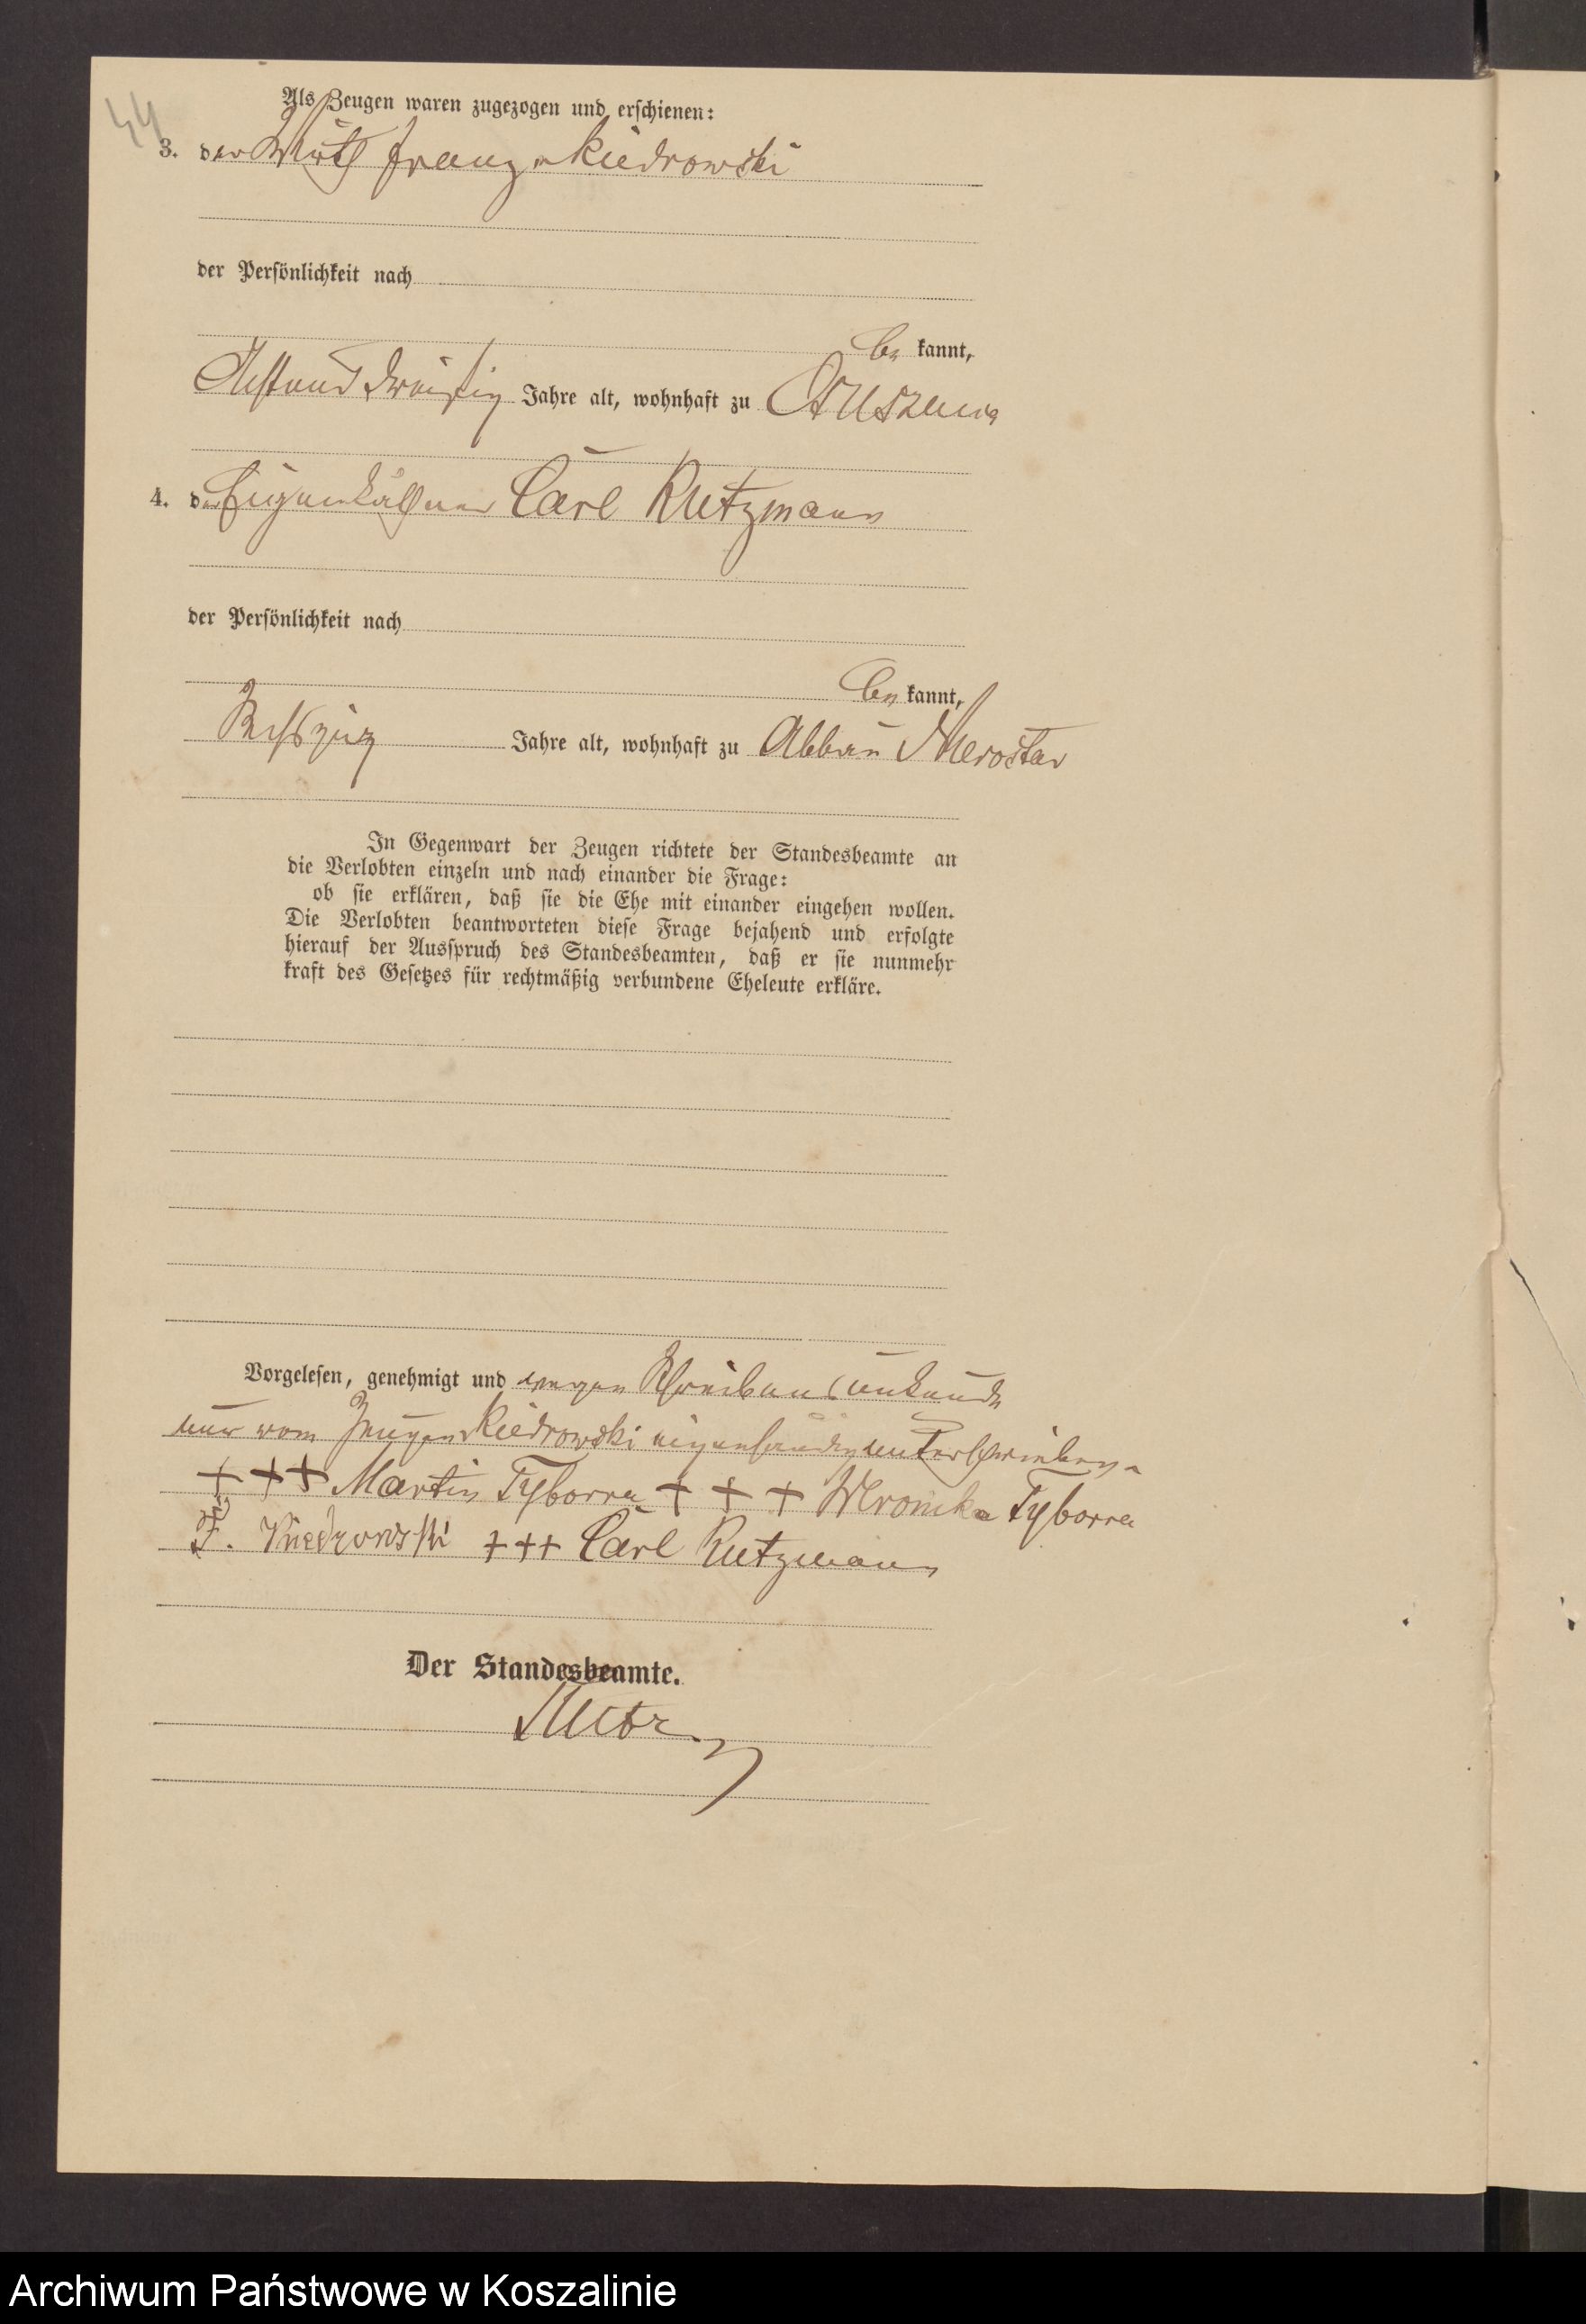 44
Als Zeugen waren zugezogen und erschienen:
3. der Wirth Franz v Kiedrowski
der Persönlichkeit nach
be kannt,
Acht und dreißig Jahre alt, wohnhaft zu
4. der Eigenkäthner Carl Rutzmann
der Persönlichkeit nach
be kannt,
Sechszig Jahre alt, wohnhaft zu Abbau
In Gegenwart der Zeugen richtete der Standesbeamte an
die Verlobten einzeln und nach einander die Frage:
ob sie erklären, daß sie die Ehe mit einander eingehen wollen.
Die Verlobten beantworteten diese Frage bejahend und erfolgte
hierauf der Ausspruch des Standesbeamten, daß er sie nunmehr
kraft des Gesetzes für rechtmäßig verbundene Eheleute erkläre.
Vorgelesen, genehmigt und wegen Schreibensunkunde
nur vom Zeugen Kiedrowski eigenhändig unterschrieben
+ + + Martin Tyborra + + + Weronika Tyborra
F. Kiedrowski + + + Carl Rutzmann
Der Standesbeamte.
Archiwum Państwowe w Koszalinie